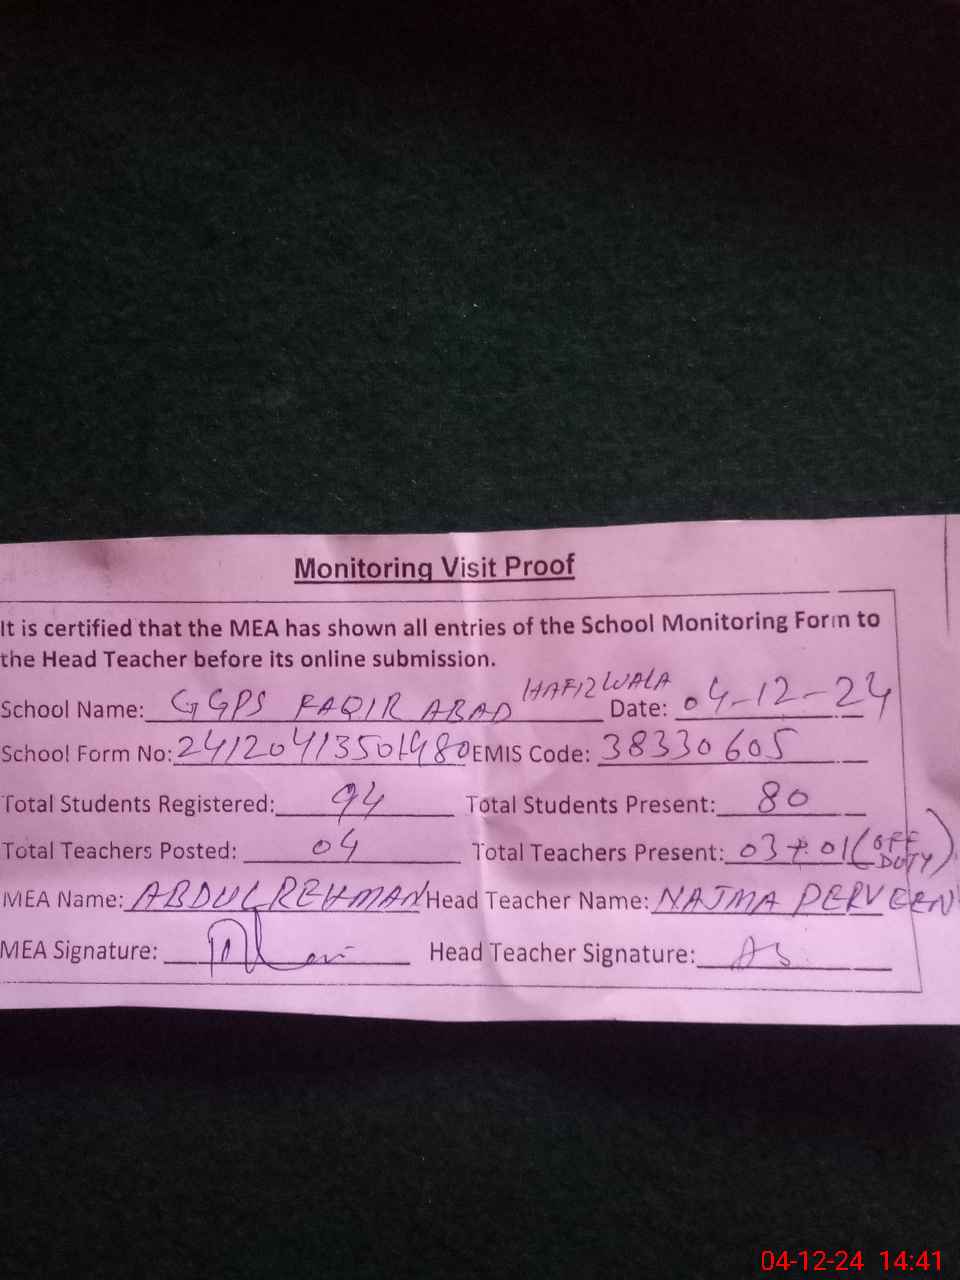 Monitoring Visit Proof
It is certified that the MEA has shown all entries of the School Monitoring Form to
the Head Teacher before its online submission.
School Name: GGPS FAQIR ABAD HAFIZWALA Date: 04-12-24
School Form No: 24120413501480 EMIS Code: 38330605
Total Students Registered: 94 Total Students Present: 80
Total Teachers Posted: 04 Total Teachers Present: 03+01 (OFF DUTY)
MEA Name: ABDUL REHMAN Head Teacher Name: NAJMA PERVEEN
MEA Signature: Head Teacher Signature:
04-12-24 14:41